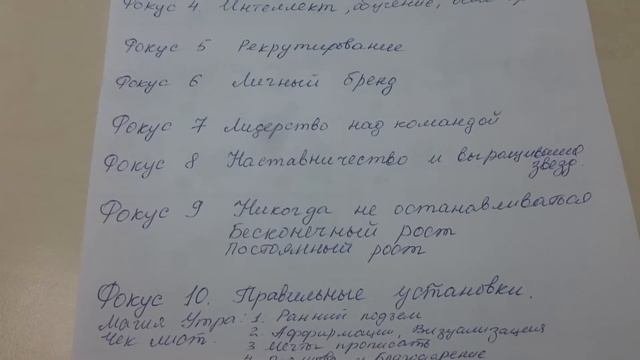 Фокус 4. Интеллект, обучение,
Фокус 5 Рекрутирование
Фокус 6 Личный бренд
Фокус 7 Лидерство над командой
Фокус 8 Наставничество и выращивание
звезд.
Фокус 9 Никогда не останавливаться
Бесконечный рост
Постоянный рост
Фокус 10. Правильные установки.
Магия Утра: 1. Ранний подъем
Чек лист. 2. Аффирмации, Визуализация
3 Мечты прописать
4. и благодарение